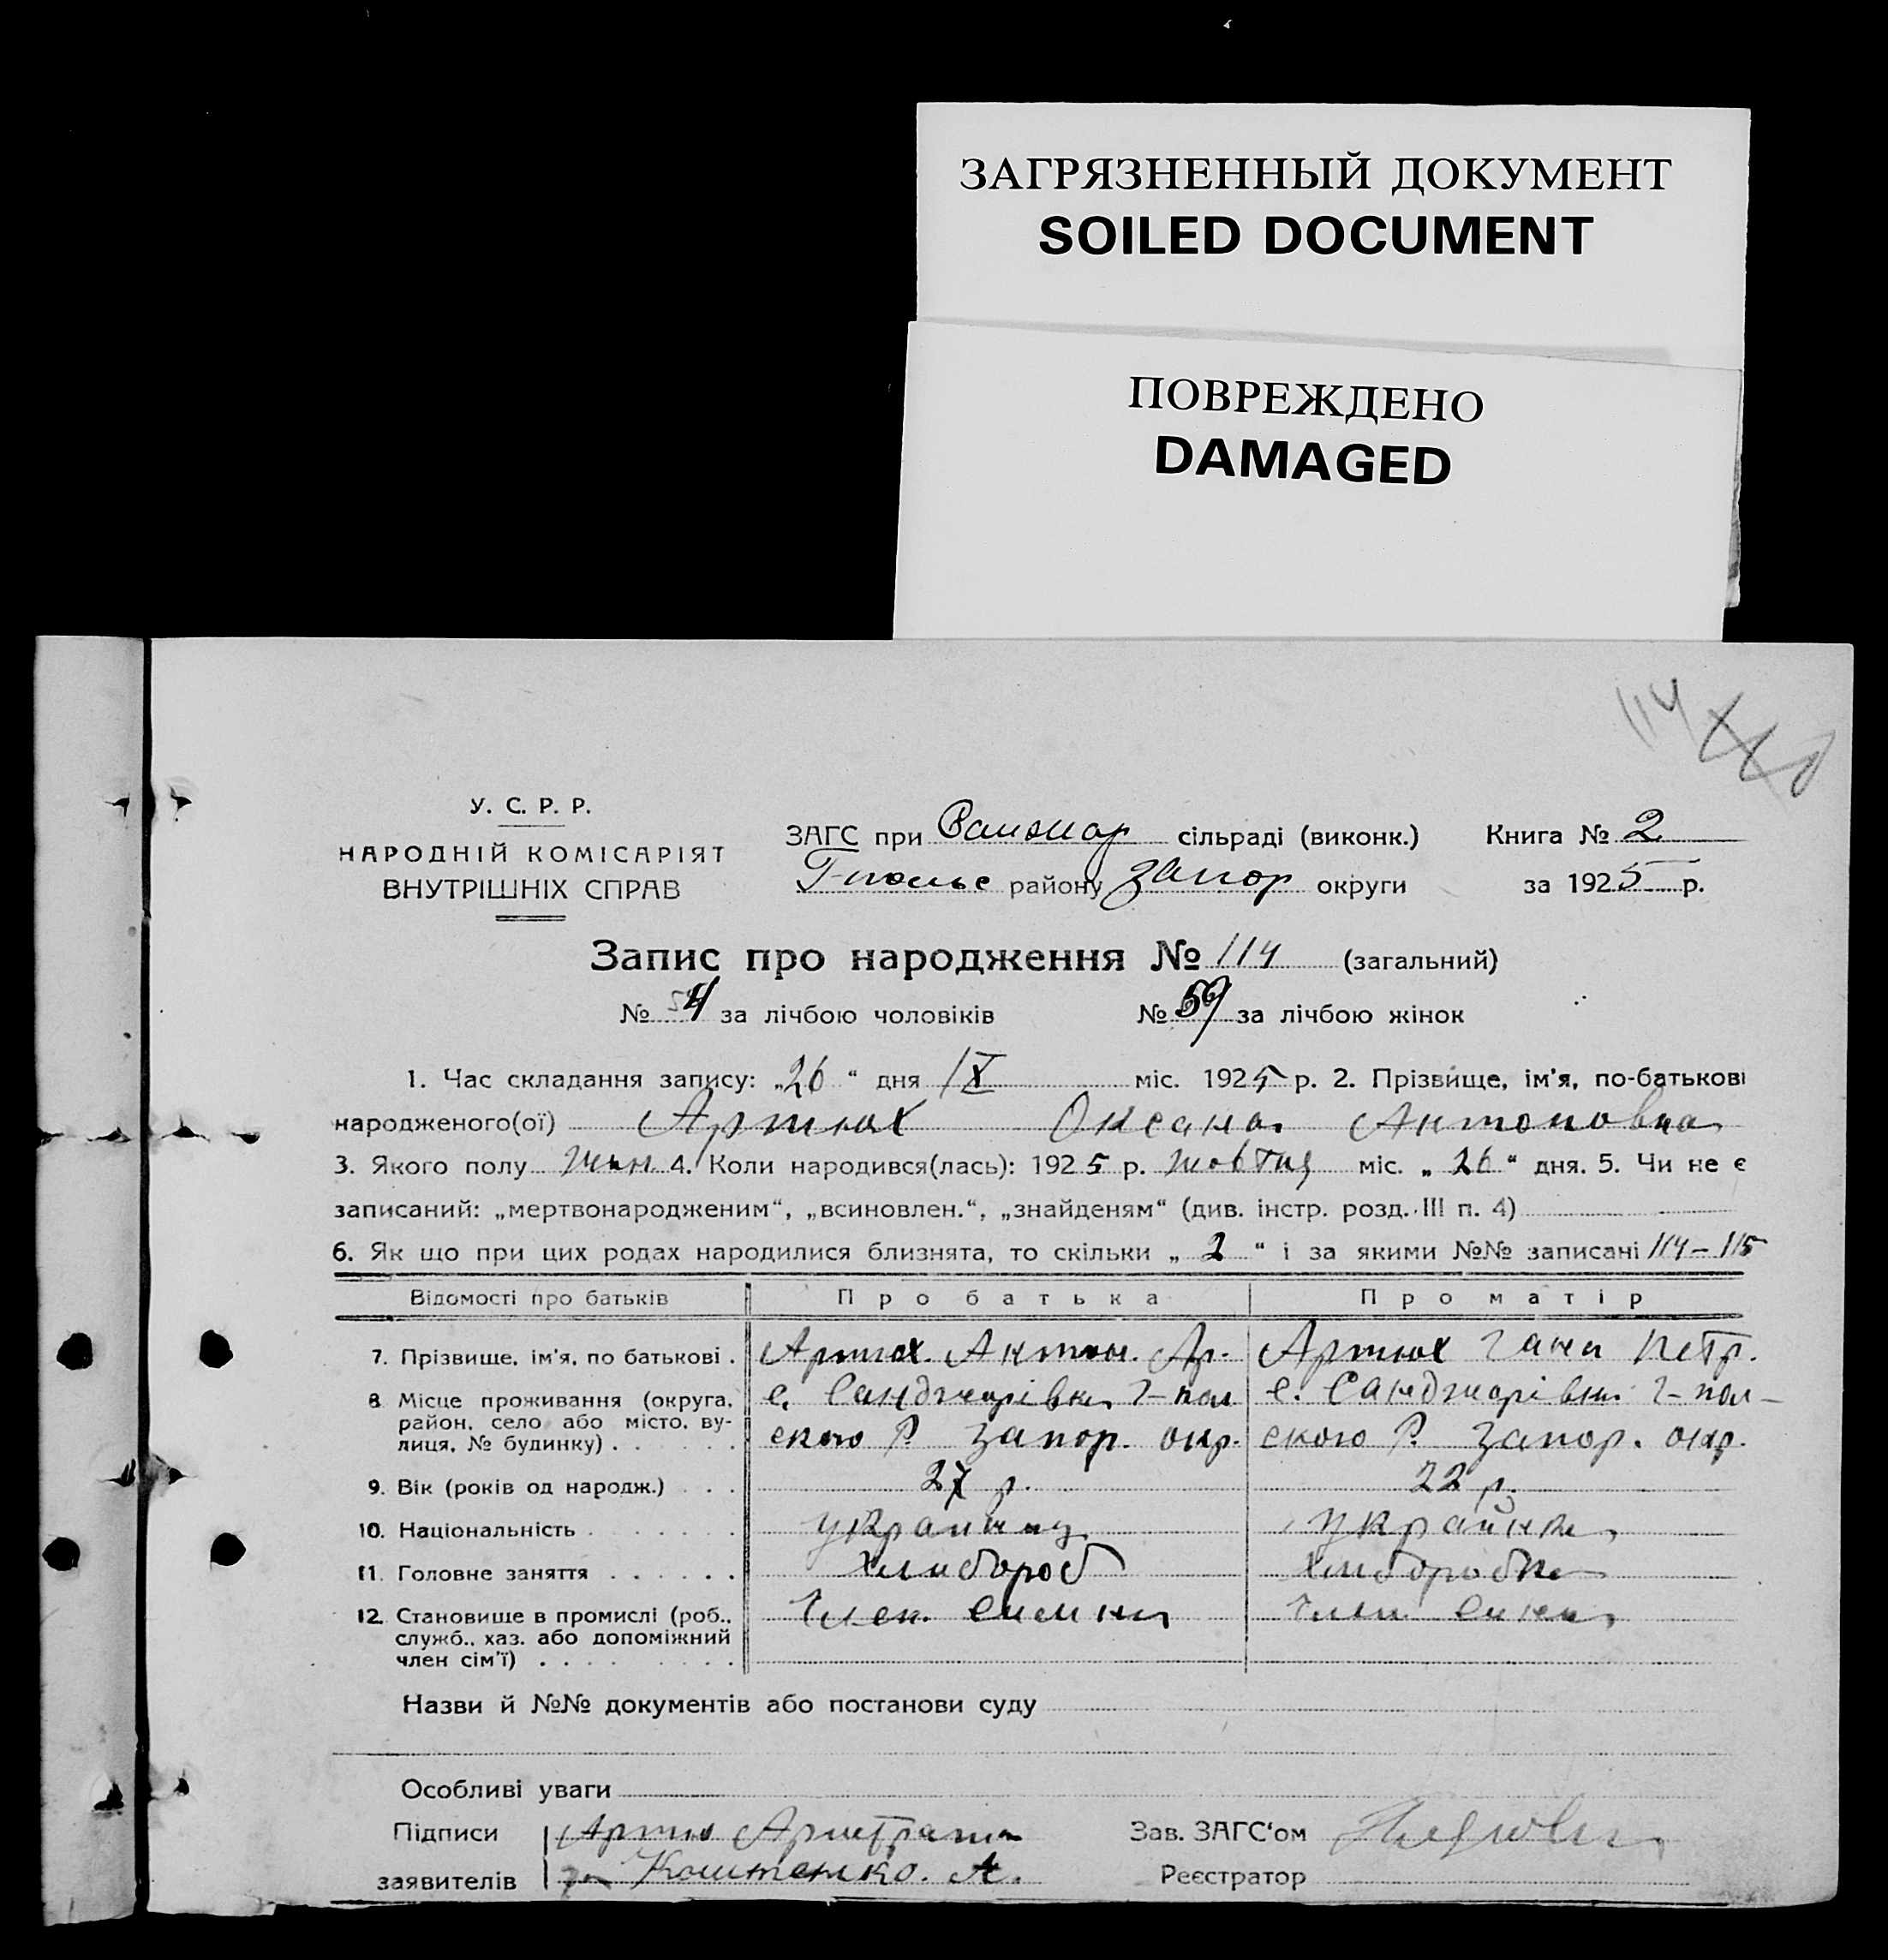 ЗАГРЯЗНЕННЫЙ ДОКУМЕНТ
SOILED DOCUMENT
ПОВРЕЖДЕНО
DAMAGED
114
У. С. Р. Р.
НАРОДНІЙ КОМІСАРІЯТ
ВНУТРІШНІХ СПРАВ
ЗАГС при сільраді (виконк.) Книга № 2
Г-польс району Запор округи за 1925 р.
Запис про народження № 114 (загальний)
№ за лічбою чоловіків № 59 за лічбою жінок
1. Час складання запису: „26“ дня IX міс. 1925 р. 2. Прізвище, ім'я, по-батькові
народженого(ої) Артюх Оксана Антоновна
3. Якого полу жин 4. Коли народився(лась): 1925 р. жовтня міс. „26“ дня. 5. Чи не є
записаний: „мертвонародженим“, „всиновлен.“, „знайденям“ (див. інстр. розд. III п. 4)
6. Як що при цих родах народилися близнята, то скільки „2“ і за якими №№ записані 114–115
Відомості про батьків Про батька Про матір
7. Прізвище, ім'я, по батькові . Артюх Антон. Ар. Артюх Гана Петр.
8 Місце проживання (округа, с. Санджарівка Г-пол с. Санджарівка Г-пол-
район, село або місто, ву-
лиця, № будинку) . ского Р. Запор. окр. ского Р. Запор. окр.
9. Вік (років од народж.) 27 р. 22 р.
10. Національність українец украйнка
11. Головне заняття хлибороб хлиборобка
12. Становище в промислі (роб., Член. симни Член.
служб., хаз. або допоміжний
член сім'ї)
Назви й №№ документів або постанови суду
Особливі уваги
Підписи Артюх Зав. ЗАГС‘ом
заявителів Коштенко. А. Реєстратор